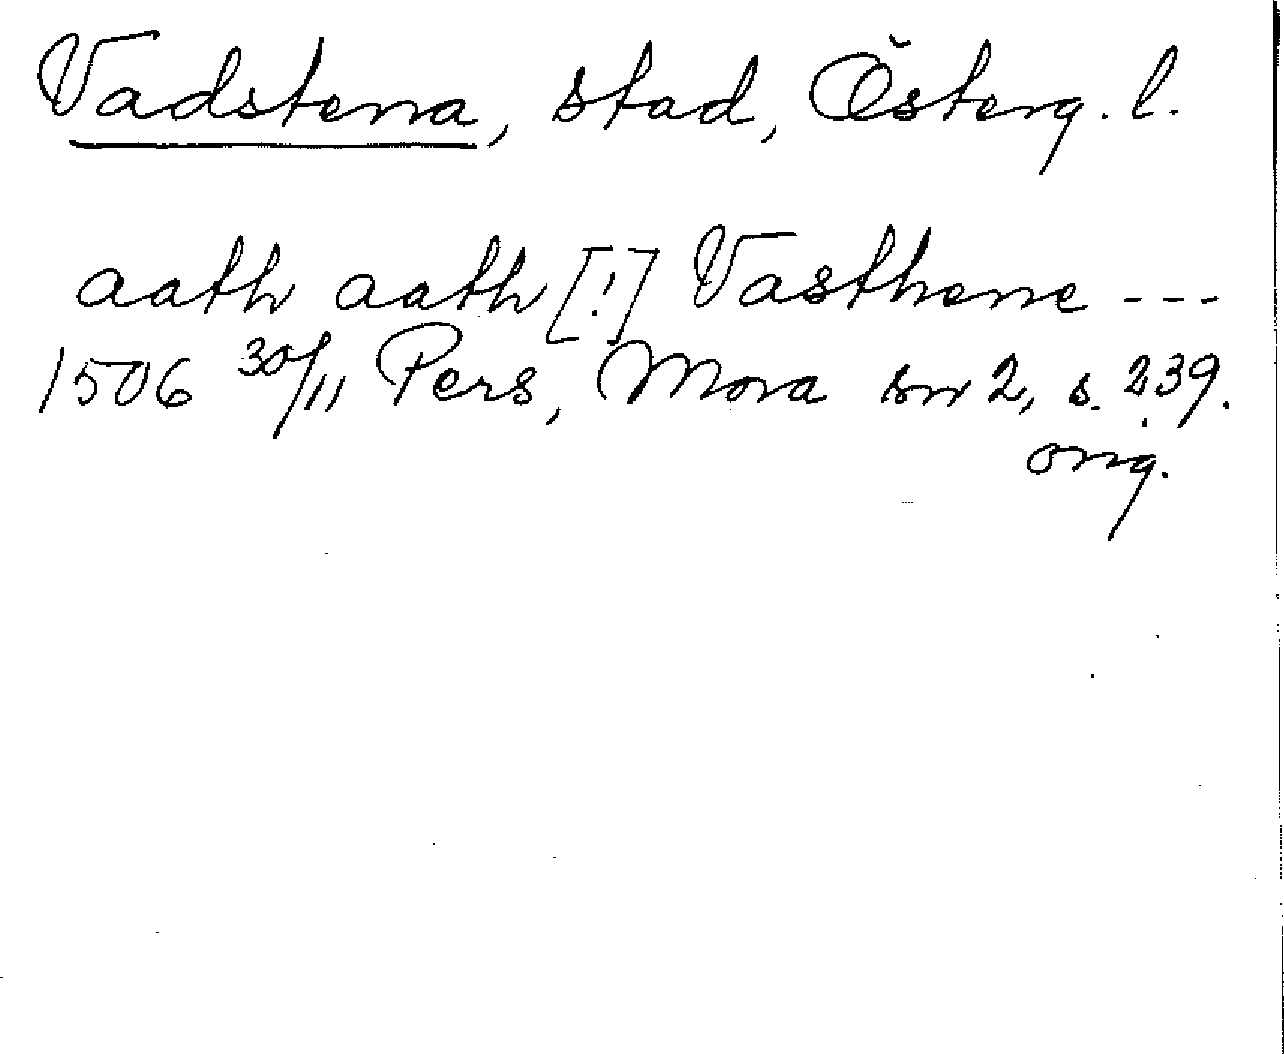 Vadstena, stad, Österg. l.
aath aath [!] Vasthene ---
1506 30/11 Pers, Mora sn 2, s. 239.
orig.